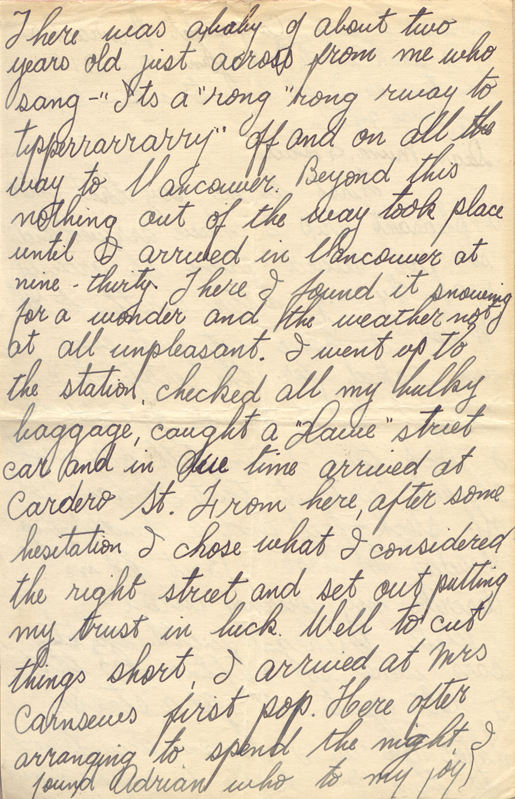 There was a baby of about two
years old just across from me who
sang - "I'ts a "rong "rong rway to
tipperrarrarry" off and on all the
way to Vancouver. Beyond this
nothing out of the way took place
until I arrived in Vancouver at
nine - thirty. There I found it snowing
for a wonder and the weather not
at all unpleasant. I went up to
the station, checked all my bulky
baggage, caught a "Davie" street
car and in due time arrived at
Cardero St. From here, after some
hesitation I chose what I considered
the right street and set out putting
my trust in luck. Well to cut
things short, I arrived at Mrs
Carnsews first pop. Here after
arranging to spend the night, I
found Adrian who to my joy)